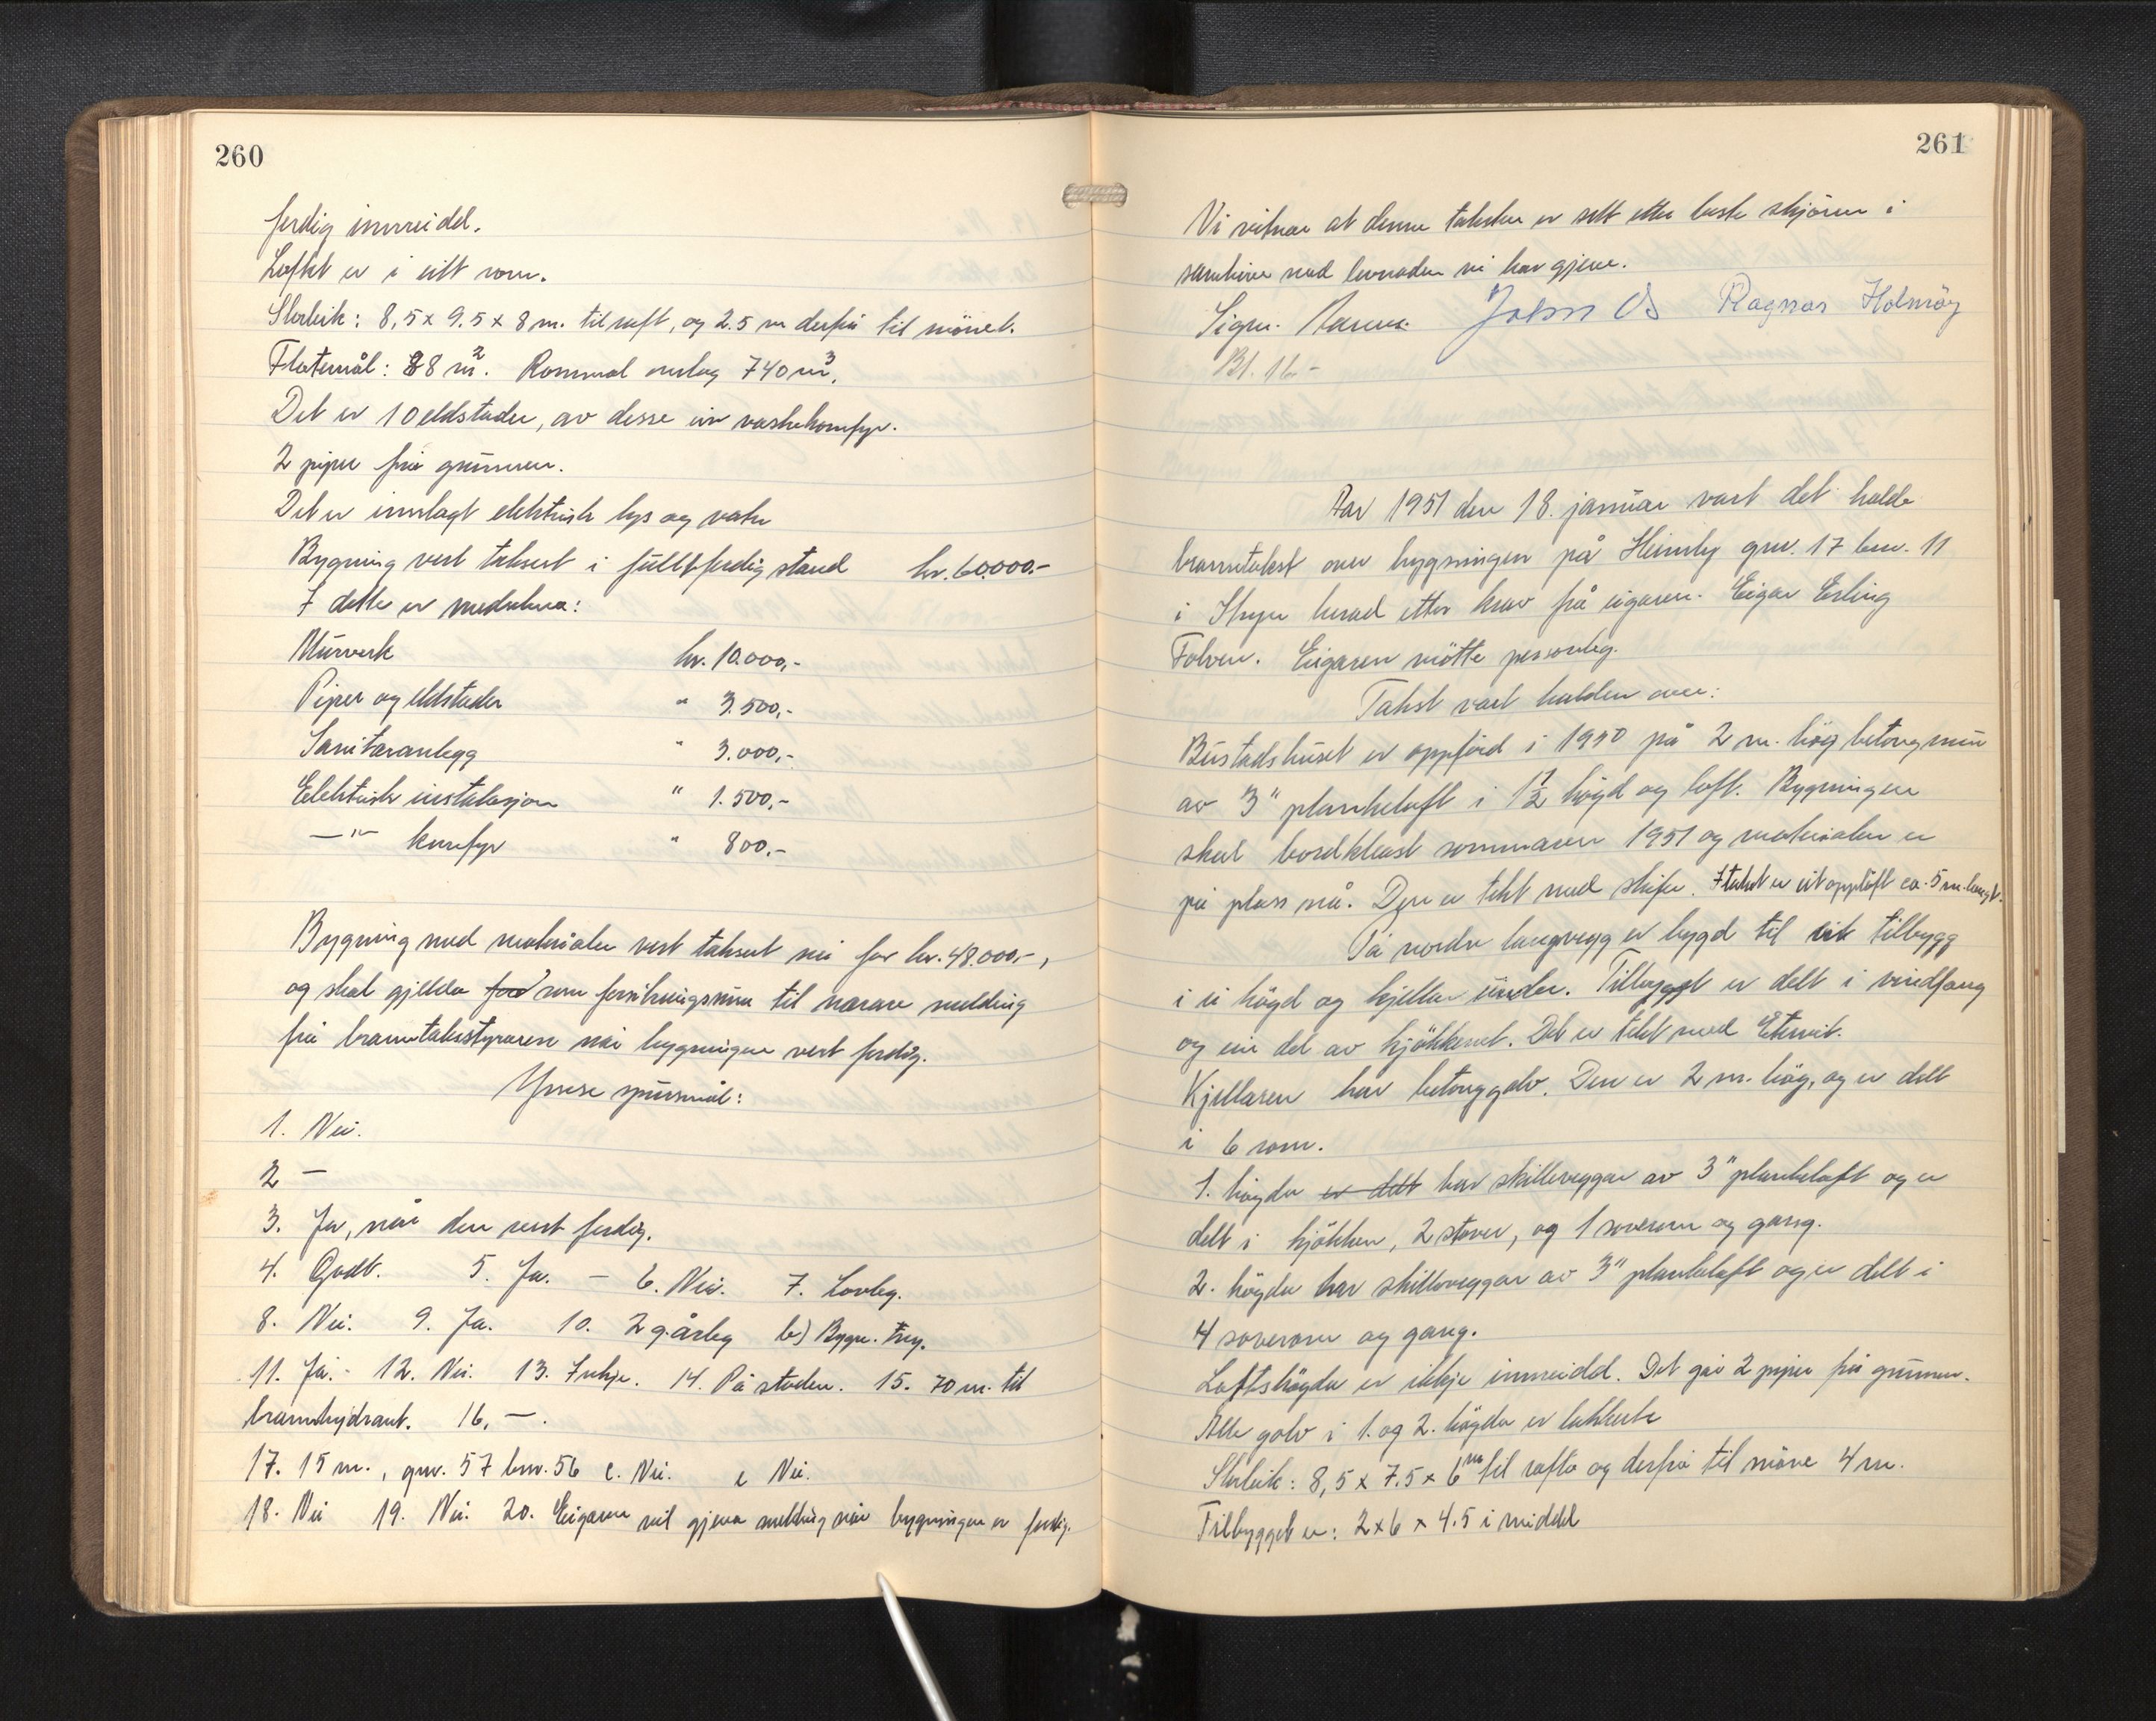 260
ferdig innreidd.
Loftet er i eitt rom.
Storleik: 8,5 x 9.5 x 8 m. til raft, og 2.5 m derfrå til mönet.
Flatemål: 88 m². Rommål omlag 740 m³.
Det er 10 eldstader, av desse ein vaskekomfyr.
2 piper frå grunnen.
Det er innlagt elektrisk lys og vatn
Bygning vert taksert i fullt ferdig stand kr. 60.000.-
I dette er medrekna:
Murverk kr. 10.000,-
Piper og eldstader " 3.500,-
Sanitæranlegg " 3.000,-
Elektrisk installasjon " 1.500,-
—"— komfyr " 800,-
Bygning med materialer vert taksert nå for kr. 48.000.-,
og skal gjelda for som forsikringssum til nærare melding
frå branntakstyraren når bygningen vert ferdig.
Ymse spursmål:
1. Nei.
2 —
3. Ja, når den vert ferdig.
4. Godt. 5. Ja. — 6. Nei. 7. Lovleg.
8. Nei. 9. Ja. 10. 2 g. årleg b) Bygn. tryg.
11. Ja.- 12. Nei. 13. Inkje. 14. På staden. 15. 70 m. til
brannhydrant. 16. —.
17. 15 m., gnr. 57 bnr. 56 c. Nei. e Nei.
18. Nei 19. Nei. 20. Eigaren vil gjeva melding når bygningen er ferdig.
261
Vi vitnar at denne taksten er sett etter beste skjönn i
samhöve med lovnaden vi har gjeve.
Sign. John Os Ragnar Holmöy
Bl. 16 -
Aar 1951 den 18. januar vart det halde
branntakst over bygningen på Heimly gnr. 17 bnr. 11
i Stryn herad etter krav frå eigaren. Eigar Erling
Folven. Eigaren mötte personleg.
Takst vart halden over:
Bustadshuset er oppförd i 1950 på 2 m. hög betongmur
av 3" plankelaft i 1½ högd og loft. Bygningen
skal bordkleast sommaren 1951 og materialen er
på plass nå. Den er tekt med skifer. I taket er eit opplöft ca. 5 m. langt.
På nordre langvegg er bygd til eit tilbygg
i ei högd og kjellar under. Tilbygget er delt i vindfang
og ein del av kjökkenet. Det er tekt med Eternit.
Kjellaren har betonggolv. Den er 2 m. hög, og er delt
i 6 rom.
1. högda er delt har skilleveggar av 3" plankelaft og er
delt i kjökken, 2 stover, og 1 soverom og gang.
2. högda har skilleveggar av 3" plankelaft og er delt i
4 soverom og gang.
Loftshögda er ikkje innreidd. Det går 2 piper frå grunnen.
Alle golv i 1. og 2. högda er lakkerte
Storleik: 8,5 x 7.5 x 6 m til rafta og derfrå til möne 4 m.
Tilbygget er: 2 x 6 x 4.5 i middel